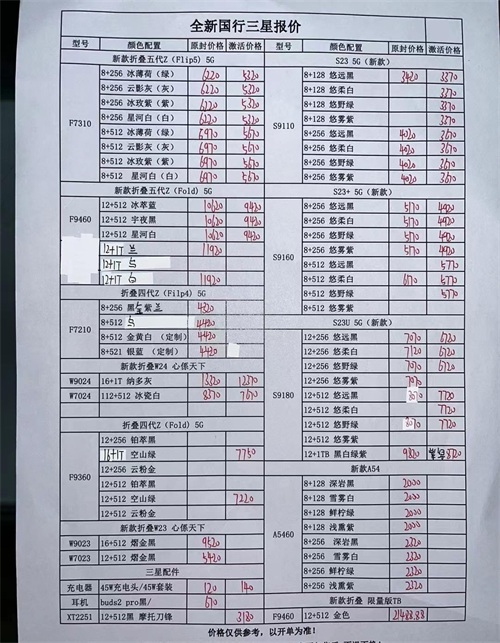 全新国行三星报价
型号 颜色配置 原封价格 激活价格
新款折叠五代Z（Flip5）5G
F7310
8+256 冰薄荷（绿） 6220 5320
8+256 云影灰（灰） 6220 5320
8+256 冰玫紫（紫） 6220 5320
8+256 星河白（白） 6220 5320
8+512 冰薄荷（绿） 6970 5670
8+512 云影灰（灰） 6970 5670
8+512 冰玫紫（紫） 6970 5670
8+512 星河白（白） 6970 5670
新款折叠五代Z（Fold）5G
F9460
12+512 冰萃蓝 10620 9420
12+512 宇夜黑 10620 9420
12+512 星河白 10620 9420
12+1T 兰 11920
12+1T
12+1T 11920
折叠四代Z（Filp4）5G
F7210
8+256 黑 紫兰 4320
8+512 4420
8+512 金黄白（定制） 4420
8+521 银蓝（定制） 4420
新款折叠W24 心係天下
W9024 16+1T 纳多灰 13320 12370
W7024 112+512 冰瓷白 8370 7670
折叠四代Z（Fold）5G
F9360
12+256 铂萃黑
16+1T 空山绿 7750
12+256 云粉金
12+512 铂萃黑
12+512 空山绿 7220
12+512 云粉金
新款折叠W23 心係天下
W9023 16+512 熠金黑 9520
W7023 12+512 熠金黑 5420
三星配件
充电器 45W充电头/45W套装 120 140
耳机 buds2 pro黑/ 670
XT2251 12+512黑 摩托刀锋 3180
型号 颜色配置 原封价格 激活价格
S23 5G（新款）
S9110
8+128 悠远黑 3420 3370
8+128 悠柔白 3370
8+128 悠野绿 3370
8+128 悠雾紫 3370
8+256 悠远黑 4020 3670
8+256 悠柔白 4020 3670
8+256 悠野绿 4020 3670
8+256 悠雾紫 4020 3670
S23+ 5G（新款）
S9160
8+256 悠远黑 5170 4920
8+256 悠柔白 5170 4920
8+256 悠野绿 5170 4920
8+256 悠雾紫 5170 4920
8+512 悠远黑 5770
8+512 悠柔白 6170 5770
8+512 悠野绿 5770
8+512 悠雾紫
S23U 5G（新款）
S9180
12+256 悠远黑 7070 6720
12+256 悠柔白 7120 6720
12+256 悠野绿 7070 6720
12+256 悠雾紫 7070
12+512 悠远黑 8070 7720
12+512 悠柔白 7720
12+512 悠野绿 8070 7720
12+512 悠雾紫
12+1TB 黑白绿紫 9820 8720
新款A54
A5460
8+128 深岩黑 2000
8+128 雪雾白 2000
8+128 鲜柠绿 2000
8+128 浅熏紫 2000
8+256 深岩黑 2320
8+256 雪雾白 2320
8+256 鲜柠绿 2320
8+256 浅熏紫 2320
新款折叠 限量版TB
F9460 12+512 金色 21488.88
价格仅供参考，以开单为准！